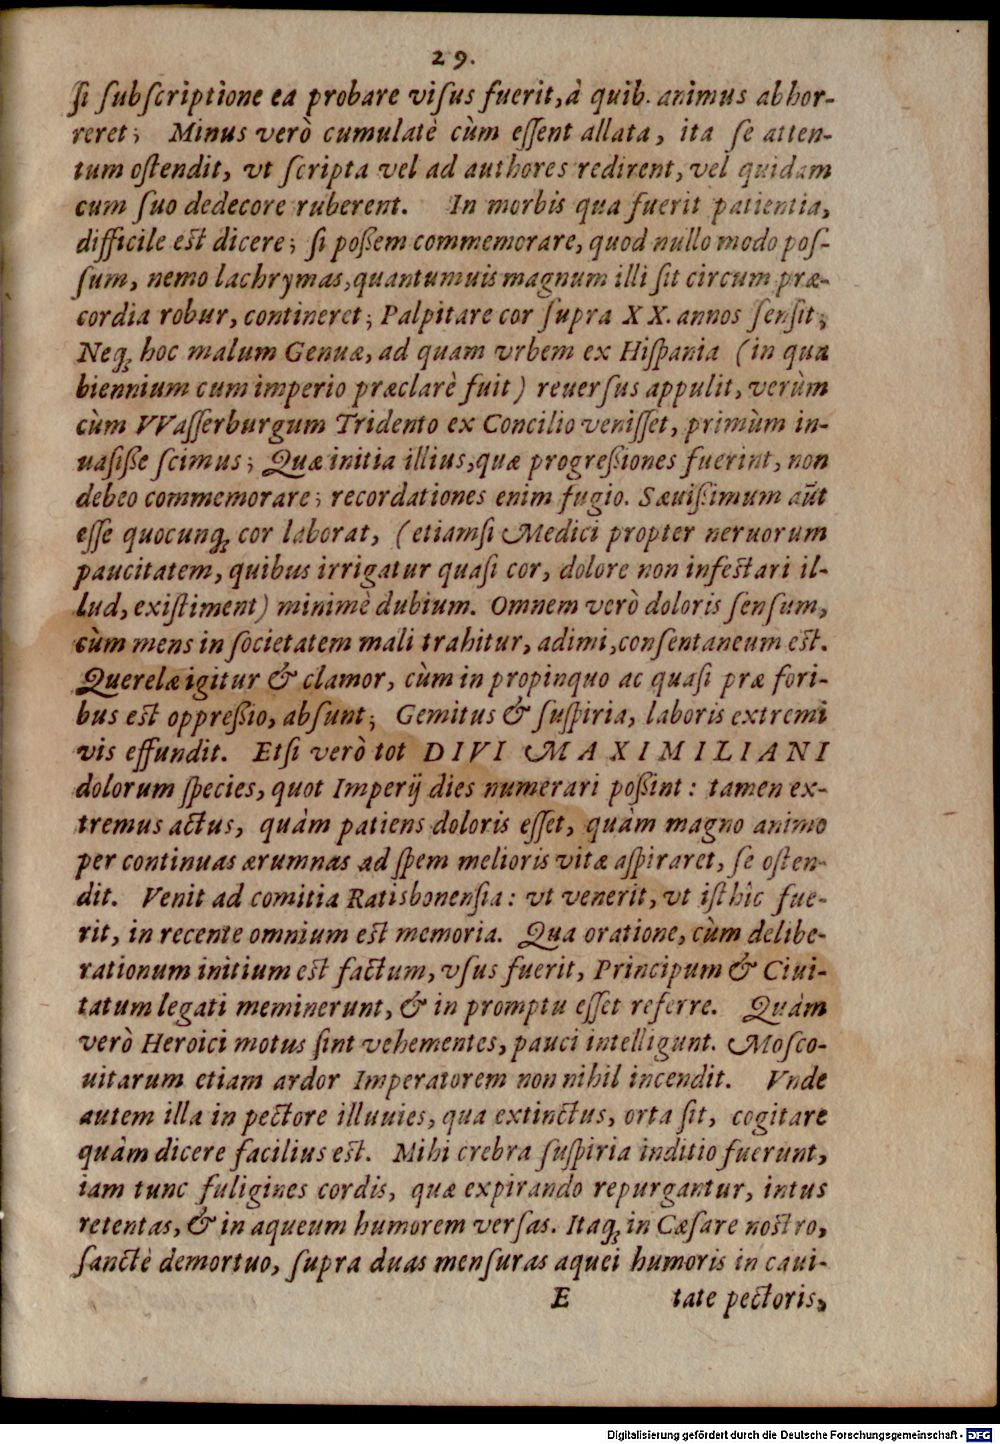 29.
ſi ſubſcriptione ea probare viſus fuerit, à quib. animus abhor-
reret; Minus verò cumulatè cùm eſſent allata, ita ſe atten-
tum oſtendit, vt ſcripta vel ad authores redirent, vel quidam
cum ſuo dedecore ruberent. In morbis qua fuerit patientia,
difficile est dicere; ſi poßem commemorare, quod nullo modo poſ-
ſum, nemo lachrymas, quantumuis magnum illi ſit circum præ-
cordia robur, contineret; Palpitare cor ſupra XX. annos ſenſit;
Neq; hoc malum Genuæ, ad quam vrbem ex Hiſpania (in qua
biennium cum imperio præclarè fuit) reuerſus appulit, verùm
cùm VVaſſerburgum Tridento ex Concilio veniſſet, primùm in-
uaſiße ſcimus; Quæ initia illius, quæ progreßiones fuerint, non
debeo commemorare; recordationes enim fugio. Sæuißimum aūt
eſſe quocunq; cor laborat, (etiamſi Medici propter neruorum
paucitatem, quibus irrigatur quaſi cor, dolore non infestari il-
lud, exiſtiment) minimè dubium. Omnem verò doloris ſenſum,
cùm mens in ſocietatem mali trahitur, adimi, conſentaneum est.
Querelæ igitur & clamor, cùm in propinquo ac quaſi præ fori-
bus est oppreßio, abſunt; Gemitus & ſuſpiria, laboris extremi
vis effundit. Etſi verò tot DIVI MAXIMILIANI
dolorum ſpecies, quot Imperij dies numerari poßint: tamen ex-
tremus actus, quàm patiens doloris eſſet, quàm magno animo
per continuas ærumnas ad ſpem melioris vitæ aſpiraret, ſe oſten-
dit. Venit ad comitia Ratisbonenſia: vt venerit, vt iſthìc fue-
rit, in recente omnium est memoria. Qua oratione, cùm delibe-
rationum initium est factum, vſus fuerit, Principum & Ciui-
tatum legati meminerunt, & in promptu eſſet referre. Quàm
verò Heroici motus ſint vehementes, pauci intelligunt. Moſco-
uitarum etiam ardor Imperatorem non nihil incendit. Vnde
autem illa in pectore illuuies, qua extinctus, orta ſit, cogitare
quàm dicere facilius est. Mihi crebra ſuſpiria inditio fuerunt,
iam tunc fuligines cordis, quæ expirando repurgantur, intus
retentas, & in aqueum humorem verſas. Itaq; in Cæſare nostro,
ſanctè demortuo, ſupra duas menſuras aquei humoris in caui-
E tate pectoris,
Digitalisierung gefördert durch die Deutsche Forschungsgemeinschaft - DFG